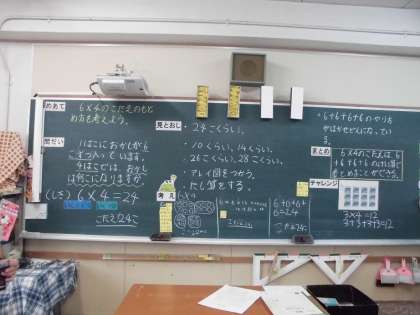 めあて
6×4のこたえのもと
め方を考えよう。
問だい
1はこにおかしが6
こずつ入っています。
4はこでは、おかし
は何こになりますか。
(しき) 6×4=24
こたえ24こ
見とおし
・24こくらい。
・10くらい、14くらい。
・26こくらい、28こくらい。
・アレイ図をつかう。
・たし算をする。
考え
6×4
6+6+6+
6=24
こたえ24こ
・6+6+6+6のやり方
まとめ
6×4のこたえは、6
+6+6+6のけい算で
もとめることができる。
チャレンジ
3×4=12
3+3+3+3=12